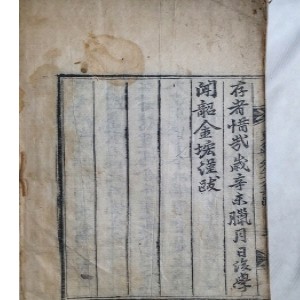 存者惜哉歲辛未臘月日後學
聞韶金墲謹跋